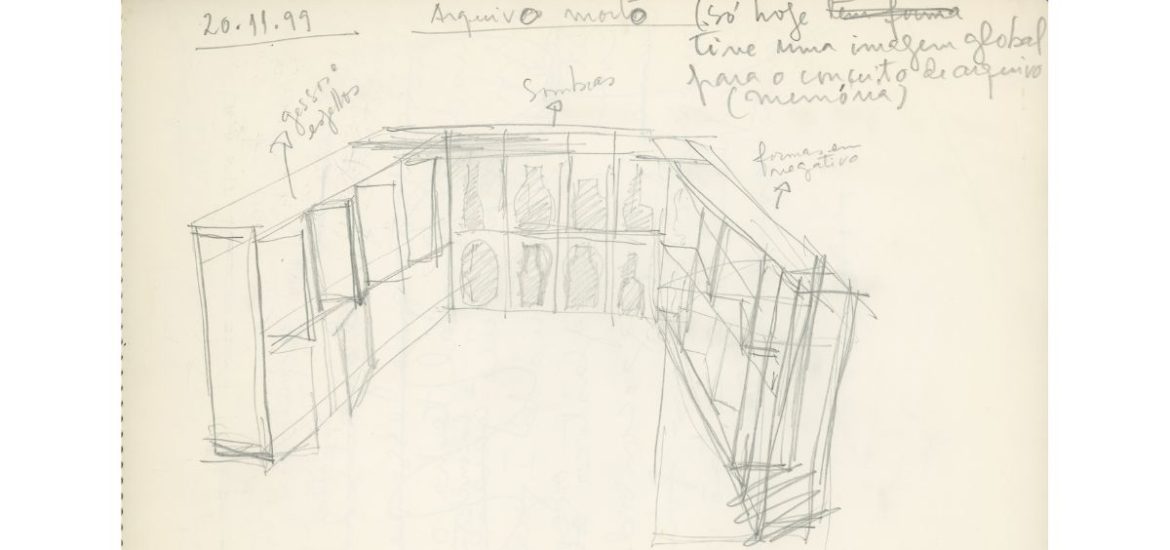 20.11.99
Arquivo morto
(só hoje tem forma
tive uma imagem global
para o conceito de arquivo
(memória)
gessos
espelhos
Sombras
formas em
negativo